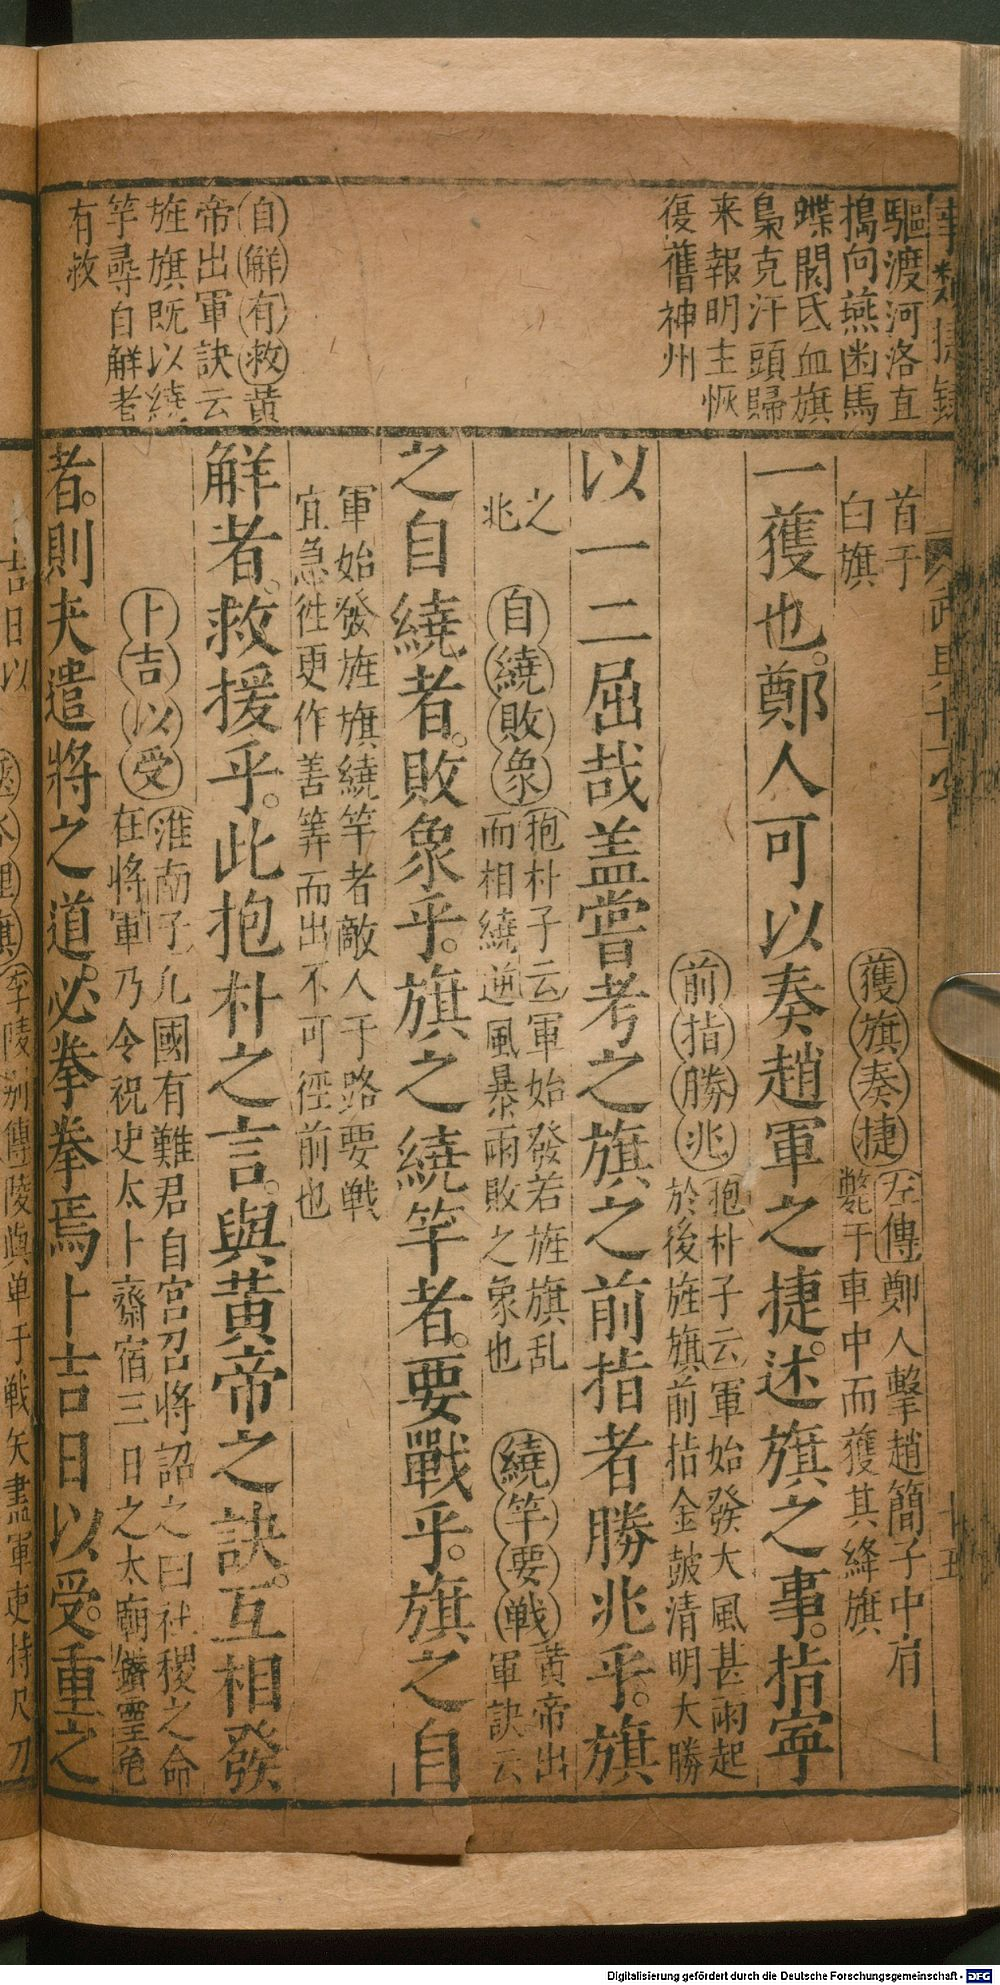 驅渡河洛直
搗向燕幽馬
蹀閼氏血旗
梟克汗頭歸
来報明主恢
復舊神州
自觧有救黃
帝出軍訣云
旌旗既以繞
竿尋自觧者
有救
首于
白旗
獲旗奏捷
左傳鄭人擊趙簡子中肩
斃于車中而獲其絳旗
一獲也鄭人可以奏趙軍之捷述旗之事指寧
前指勝兆
抱朴子云軍始發大風甚雨起
於後旌旗前拈金皷清明大勝
以一二屈哉盖嘗考之旗之前指者勝兆乎旗
之
兆
自繞敗象
抱朴子云軍始發若旌旗乱
而相繞逆風暴雨敗之象也
繞竿要戰
黄帝出
軍訣云
之自繞者敗象乎旗之繞竿者要戰乎旗之自
軍始發旌旗繞竿者敵人于路要戦
宜急徃更作善筭而出不可徑前也
觧者救援乎此抱朴之言與黃帝之訣互相發
卜吉以受
淮南子凡國有難君自宮召将詔之曰社稷之命
在将軍乃令祝史太卜齋宿三日之太廟鑚靈龟
者則夫遣將之道必拳拳焉卜吉日以受重之
李陵别傳陵與单于戦矢盡軍吏持尺刀